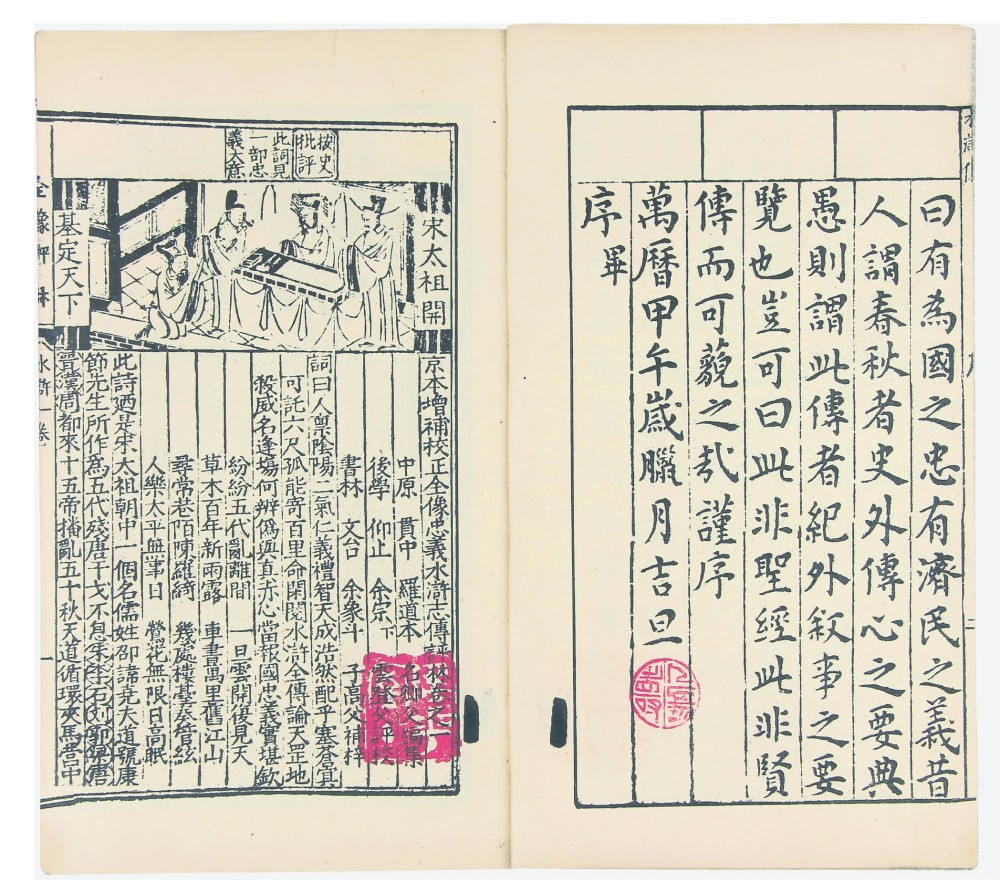 曰有為國之忠有濟民之義昔
人謂春秋者史外傳心之要典
愚則謂此傳者紀外敘事之要
覽也豈可曰此非聖經此非賢
傳而可藐之哉謹序
萬曆甲午歲臘月吉旦
序畢
二
按史
批評
此詞見
一部忠
義大意
宋太祖開
基定天下
京本增補校正全像忠義水滸志傳評林卷之一
中原 貫中 羅道本 名卿父編集
後學 仰止 余宗下 雲登父評校
書林 文台 余象斗 子高父補梓
詞曰人稟陰陽二氣仁義禮智天成浩然配乎塞蒼冥
可託六尺孤能寄百里命閑閱水滸全傳論天罡地
殺威名逢場何辨偽與真赤心當報國忠義實堪欽
紛紛五代亂離間 一旦雲開復見天
草木百年新雨露 車書萬里舊江山
尋常巷陌陳羅綺 幾處樓臺奏管絃
人樂太平無事日 鶯花無限日高眠
此詩廼是宋太祖朝中一個名儒姓邵諱堯夫道號康
節先生所作為五代殘唐干戈不息朱李石刘郭梁唐
晉漢周都來十五帝播亂五十秋天道循環夾馬營中
全像評林 水滸一卷 一